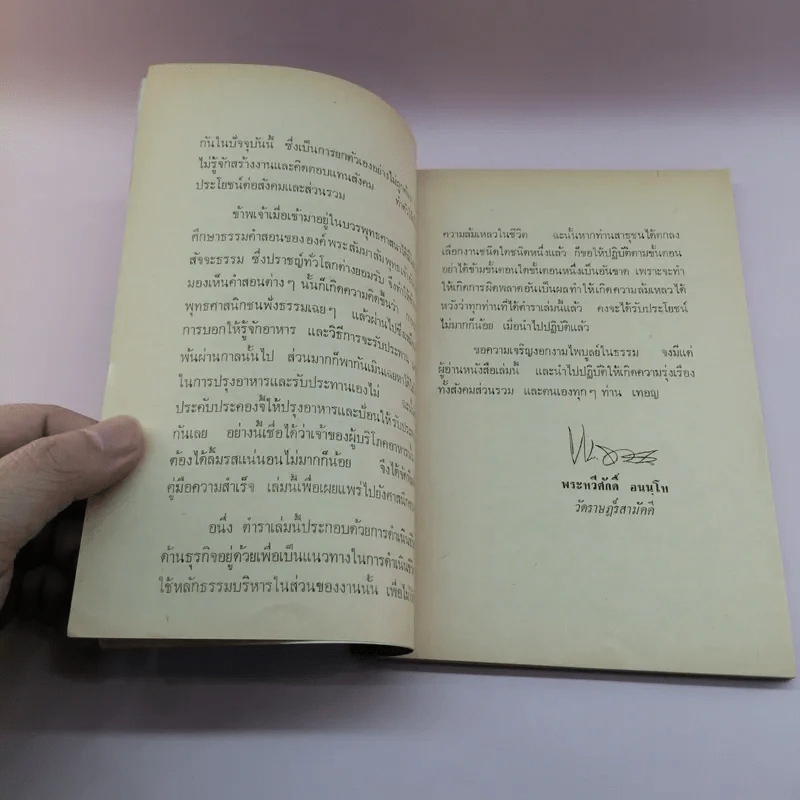 กันในปัจจุบันนี้ ซึ่งเป็นการยกตัวเองอย่างไม่ถูก
ไม่รู้จักสร้างงานและคิดตอบแทนสังคม
ประโยชน์ต่อสังคมและส่วนรวม
ข้าพเจ้าเมื่อเข้ามาอยู่ในบวรพุทธศาสนาได้
ศึกษาธรรมคำสอนขององค์พระสัมมาสัมพุทธเจ้า
สัจจะธรรม ซึ่งปราชญ์ทั่วโลกต่างยอมรับ จึงทำให้
มองเห็นคำสอนต่างๆ นั้นก็เกิดความคิดขึ้นว่า
พุทธศาสนิกชนฟังธรรมเฉยๆ แล้วผ่านไป
การบอกให้รู้จักอาหาร และวิธีการจะรับประทาน
พ้นผ่านกาลนั้นไป ส่วนมากก็พากันเมินเฉย
ในการปรุงอาหารและรับประทานเองไม่
ประคับประคองจี้ให้ปรุงอาหารและป้อนให้รับประ
กันเลย อย่างนี้เชื่อได้ว่าเจ้าของผู้บริโภคอาหาร
ต้องได้ลิ้มรสแน่นอนไม่มากก็น้อย จึงได้จัด
คู่มือความสำเร็จ เล่มนี้เพื่อเผยแพร่ไปยังศาสนิก
อนึ่ง ตำราเล่มนี้ประกอบด้วยการดำเนิน
ด้านธุรกิจอยู่ด้วยเพื่อเป็นแนวทางในการดำเนิน
ใช้หลักธรรมบริหารในส่วนของงานนั้น เพื่อ
ความล้มเหลวในชีวิต ฉะนั้นหากท่านสาธุชนได้ตกลง
เลือกงานชนิดใดชนิดหนึ่งแล้ว ก็ขอให้ปฏิบัติตามขั้นตอน
อย่าได้ข้ามขั้นตอนใดขั้นตอนหนึ่งเป็นอันขาด เพราะจะทำ
ให้เกิดการผิดพลาดอันเป็นผลทำให้เกิดความล้มเหลวได้
หวังว่าทุกท่านที่ได้ตำราเล่มนี้แล้ว คงจะได้รับประโยชน์
ไม่มากก็น้อย เมื่อนำไปปฏิบัติแล้ว
ขอความเจริญงอกงามไพบูลย์ในธรรม จงมีแด่
ผู้อ่านหนังสือเล่มนี้ และนำไปปฏิบัติให้เกิดความรุ่งเรือง
ทั้งสังคมส่วนรวม และตนเองทุกๆ ท่าน เทอญ
พระทวีศักดิ์ อนนฺโท
วัดราษฎร์สามัคคี